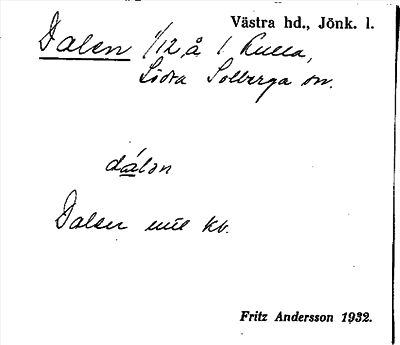 Västra hd., Jönk. l.
Dalen 1/12 å 1 Kulla,
Södra Solberga sn.
dálən
Dalen enl kv.
Fritz Andersson 1932.